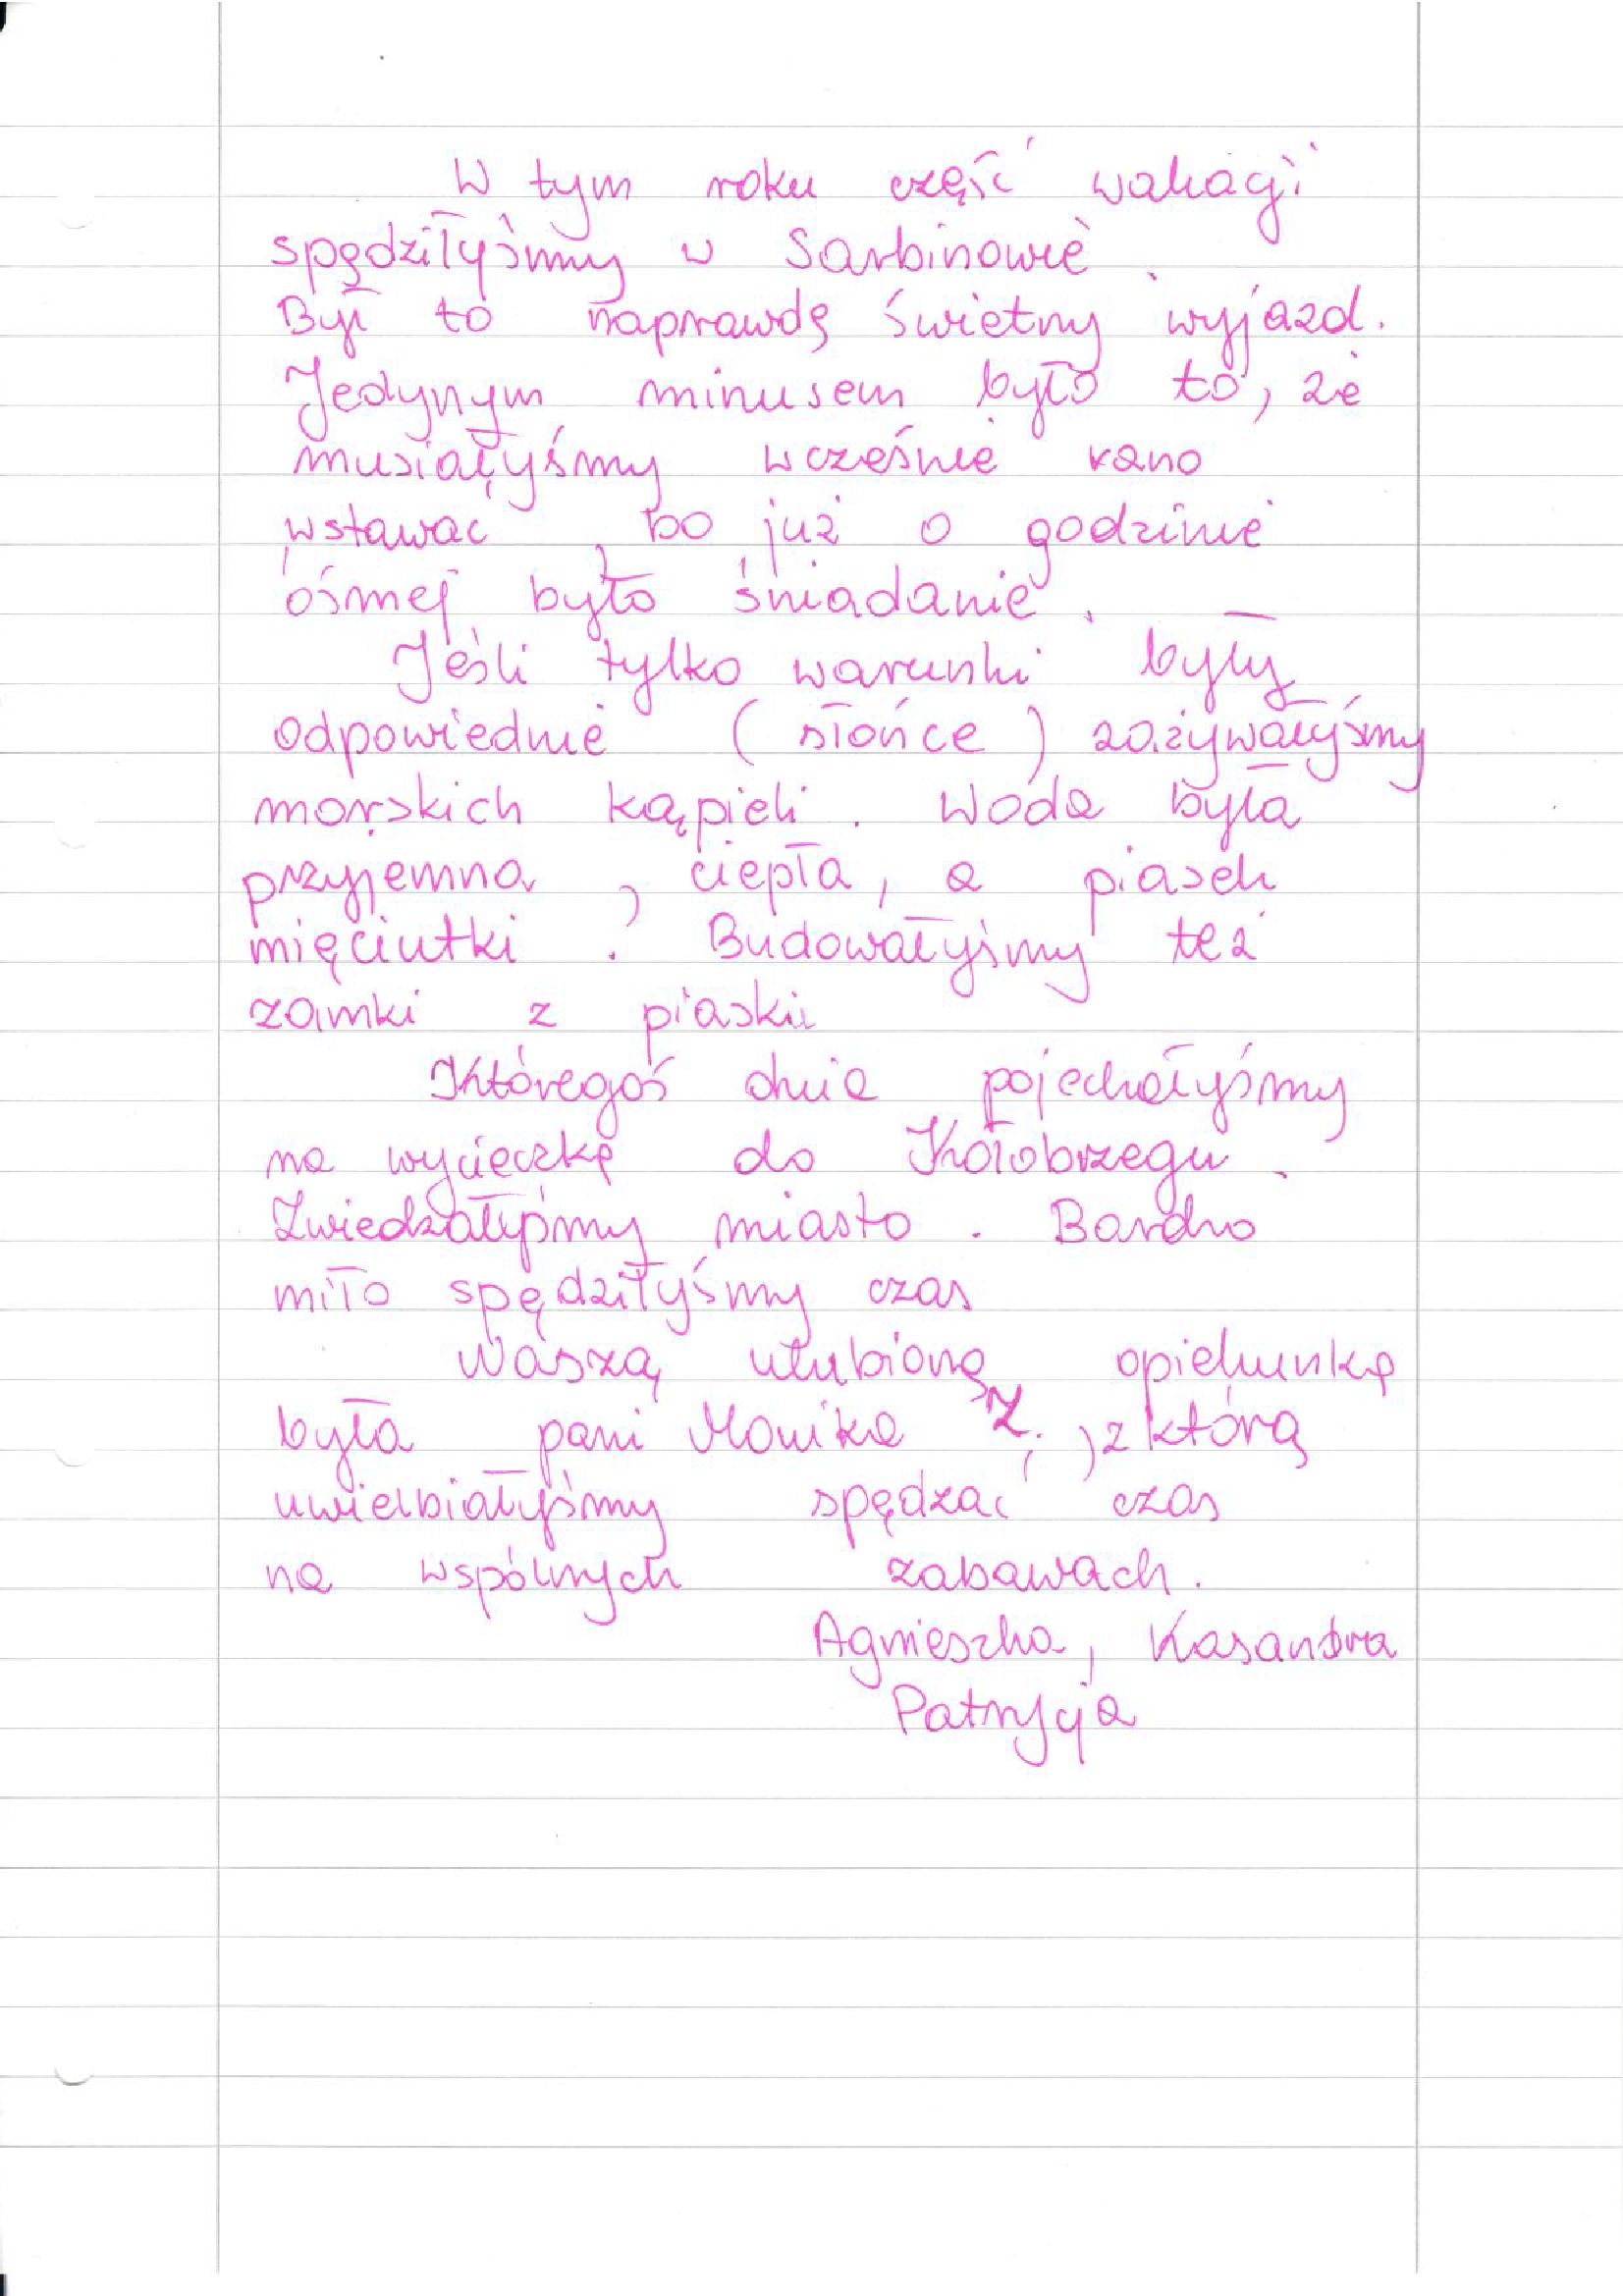 W tym roku część wakacji
spędziłyśmy w Sarbinowie.
Był to naprawdę świetny wyjazd.
Jedynym minusem było to, że
musiałyśmy wcześnie rano
wstawać, bo już o godzinie
ósmej było śniadanie.
Jeśli tylko warunki były
odpowiednie (słońce) zażywałyśmy
morskich kąpieli. Woda była
przyjemna, ciepła, a piasek
mięciutki. Budowałyśmy też
zamki z piasku
Któregoś dnia pojechałyśmy
na wycieczkę do Kołobrzegu.
Zwiedzałyśmy miasto. Bardzo
miło spędziłyśmy czas
Waszą ulubioną opiekunką
była pani Monika Z., z którą
uwielbiałyśmy spędzać czas
na wspólnych zabawach.
Agnieszka, Kasandra
Patrycja